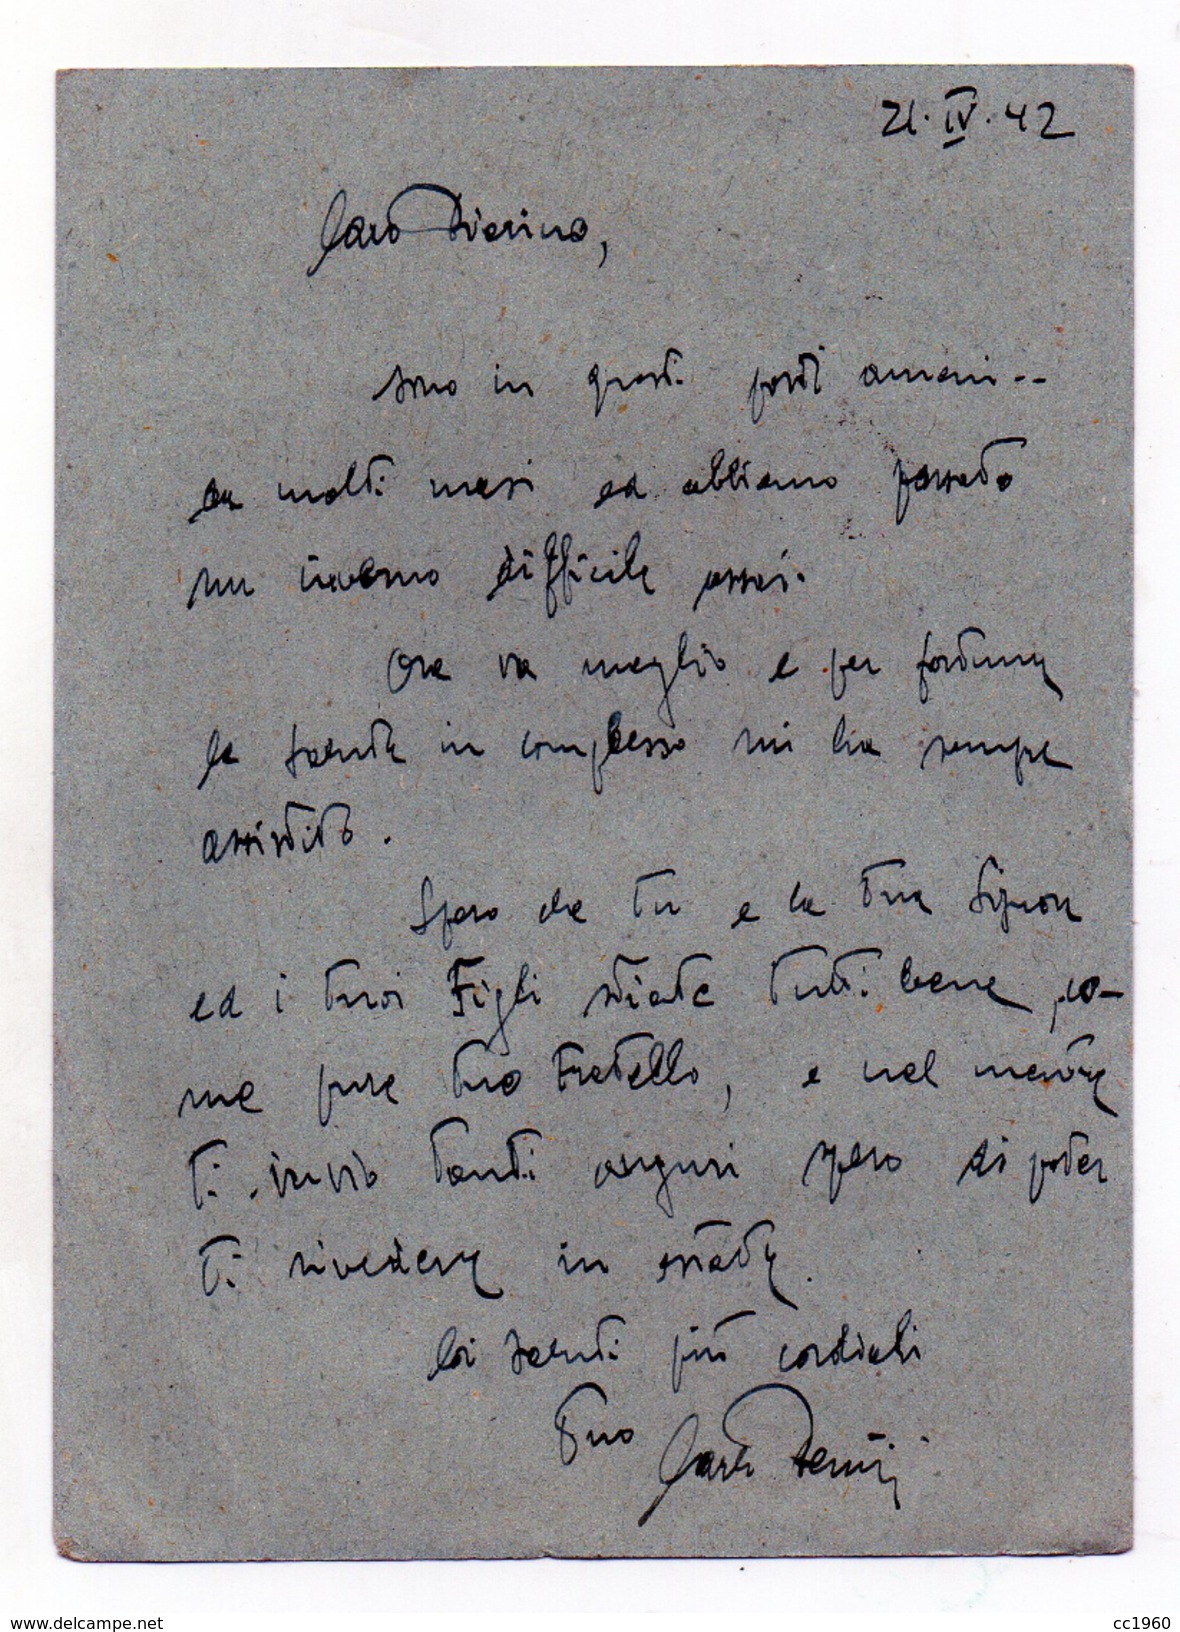 21·IV·42
Caro Pierino,
sono in questi posti ameni--
da molti mesi ed abbiamo passato
un inverno difficile assai.
Ora va meglio e per fortuna
la salute in complesso mi ha sempre
assistito.
Spero che tu e la tua Signora
ed i tuoi Figli stiate tutti bene, co-
me pure tuo Fratello, e nel mentre
ti invio tanti auguri spero di poter
ti rivedere in estate.
Coi saluti più cordiali
Tuo Carlo
www.delcampe.net
cc1960